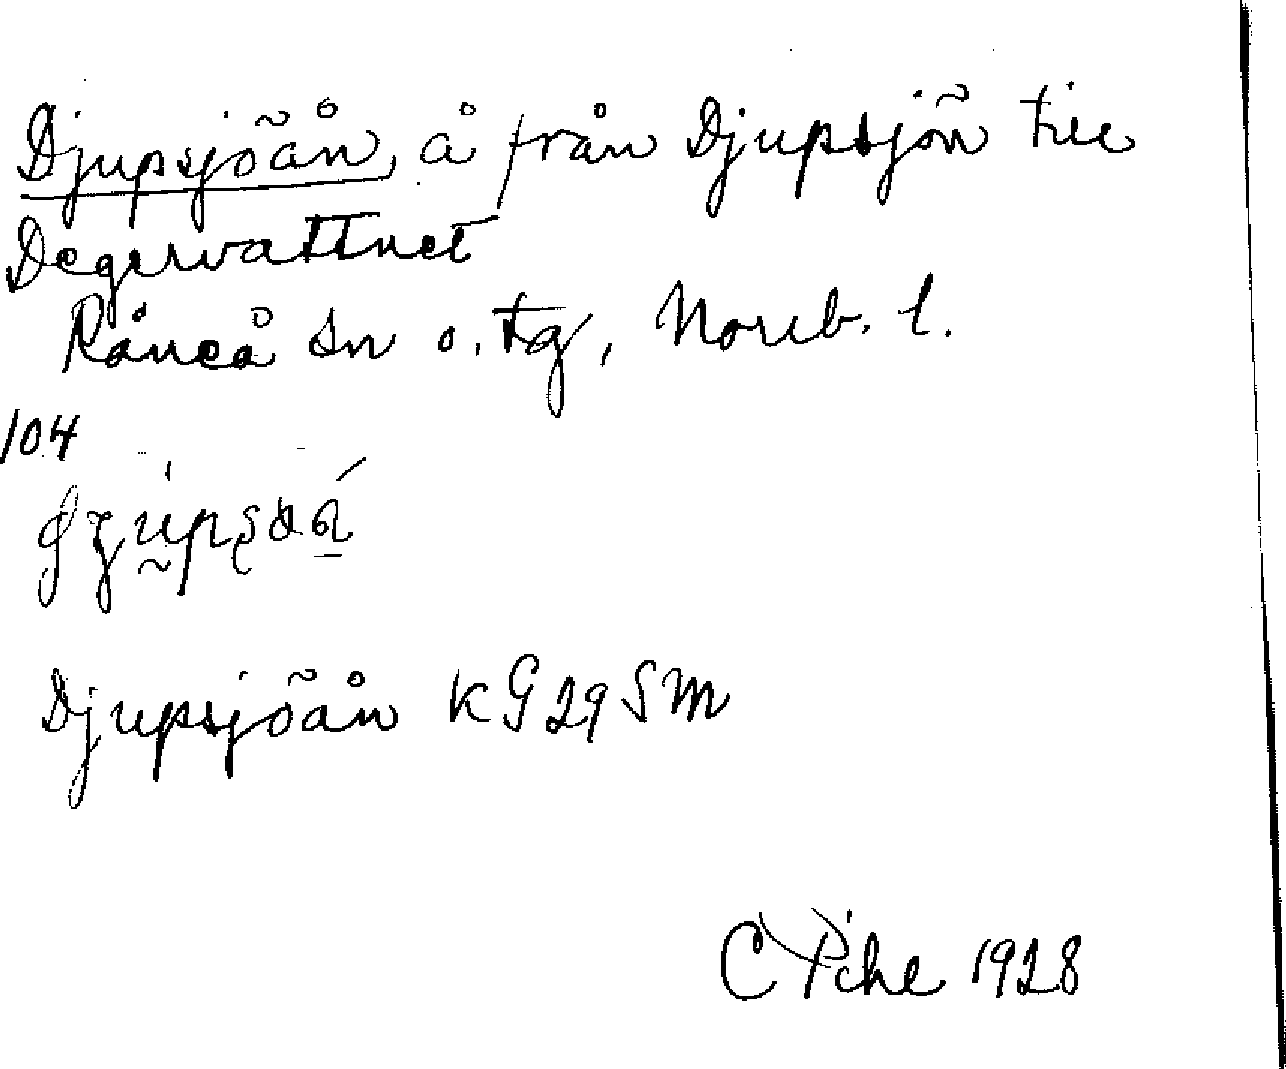 Djupsjöån, å från Djupsjön till
Degervattnet
Råneå sn o. tg, Norrb. l.
104
Djupsjöån KG 29 SM
C Pihl 1928